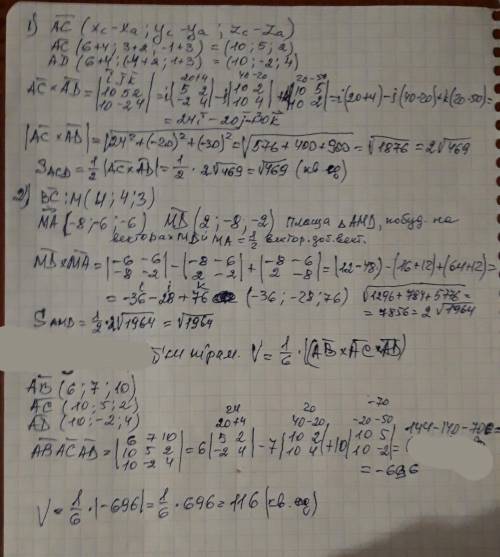 1) AC (xc-xa; yc-ya; zc-za)
AC (6+4; 3+2; -1+3) = (10; 5; 2)
AD (6+4; (-4+2; 1+3) = (10; -2; 4)
AC × AD = |i j k; 10 5 2; 10 -2 4| = i |5 2; -2 4| - j |10 2; 10 4| + k |10 5; 10 -2| = i(20+4) - j(40-20) + k(-20-50) =
20+4 40-20 -20-50
= 24i - 20j - 30k
|AC × AD| = √24²+(-20)²+(-30)² = √576+400+900 = √1876 = 2√469
S ACD = 1/2 |AC × AD| = 1/2 · 2√469 = √469 (кв. ед)
2) BC: M (4; 4; 3)
MA (-8; -6; -6) MD (2; -8; -2) площа Δ AMD, побуд. на
векторах MD и MA = 1/2 вектор. доб. вект.
MD × MA = |-6 -6; -8 -2| - |-8 -6; 2 -2| + |-8 -6; 2 -8| = (12-48) - (16+12) + (64+12) =
= -36 - 28 + 76 (-36; -28; 76) √1296+784+5776 =
i j k
= 7856 = 2√1964
S AMD = 1/2 · 2√1964 = √1964
пірам. V = 1/6 · |(AB × AC × AD)
AB (6; 7; 10)
AC (10; 5; 2)
AD (10; -2; 4)
24 20 -70
20+4 40-20 -20-50
AB AC AD = |6 7 10; 10 5 2; 10 -2 4| = 6 |5 2; -2 4| - 7 |10 2; 10 4| + 10 |10 5; 10 -2| = 144-140-700 =
= -696
V = 1/6 · |-696| = 1/6 · 696 = 116 (кв. ед)